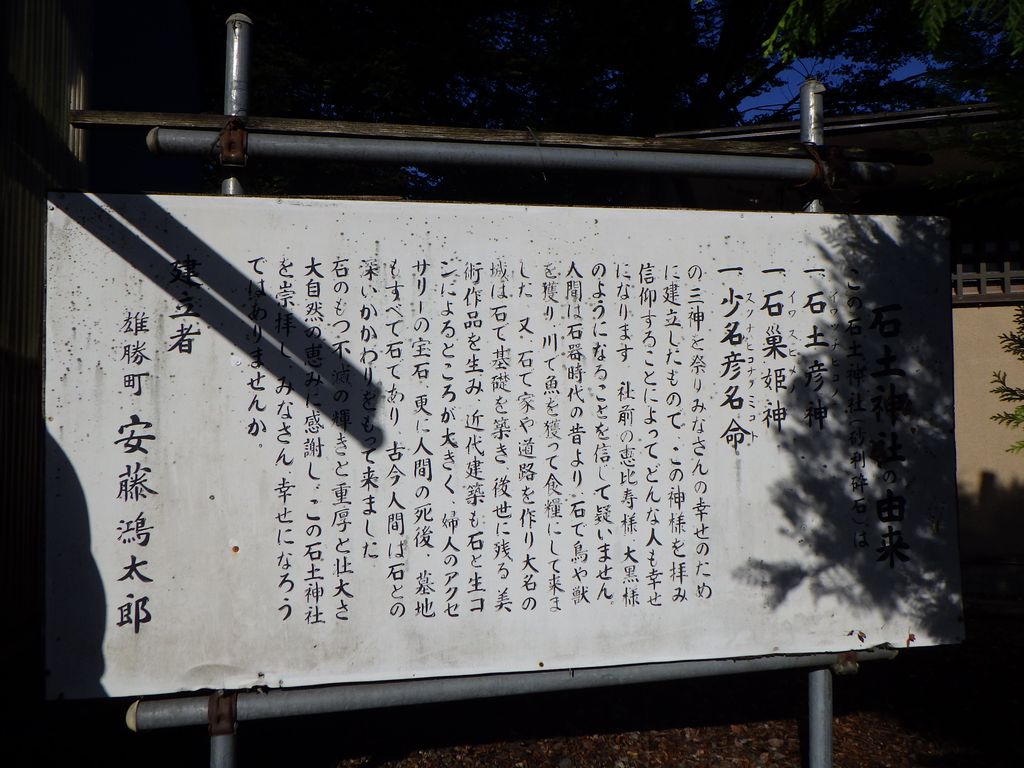 石土神社の由来
この石土神社(砂利砕石)は
一、石土彦神
イワツチヒコノ
一、石巣姫神
イワスヒメノ
一、少名彦名命
スクナヒコナノミコト
の三神を祭りみなさんの幸せのため
に建立したもので、この神様を拝み
信仰することによってどんな人も幸せ
になります 社前の恵比寿様、大黒様
のようになることを信じて疑いません。
人間は石器時代の昔より、石で鳥や獣
を獲り、川で魚を獲って食糧にして来ま
した 又、石で家や道路を作り大名の
城は石で基礎を築き、後世に残る美
術作品を生み、近代建築も石と生コ
ンによるところが大きく、婦人のアクセ
サリーの宝石、更に人間の死後、墓地
もすべて石であり、古今人間は石との
深いかかわりをもって来ました
石のもつ不滅の輝きと重厚と壮大さ
大自然の恵みに感謝し、この石土神社
を崇拝し、みなさん幸せになろう
ではありませんか。
建立者
雄勝町 安藤鴻太郎